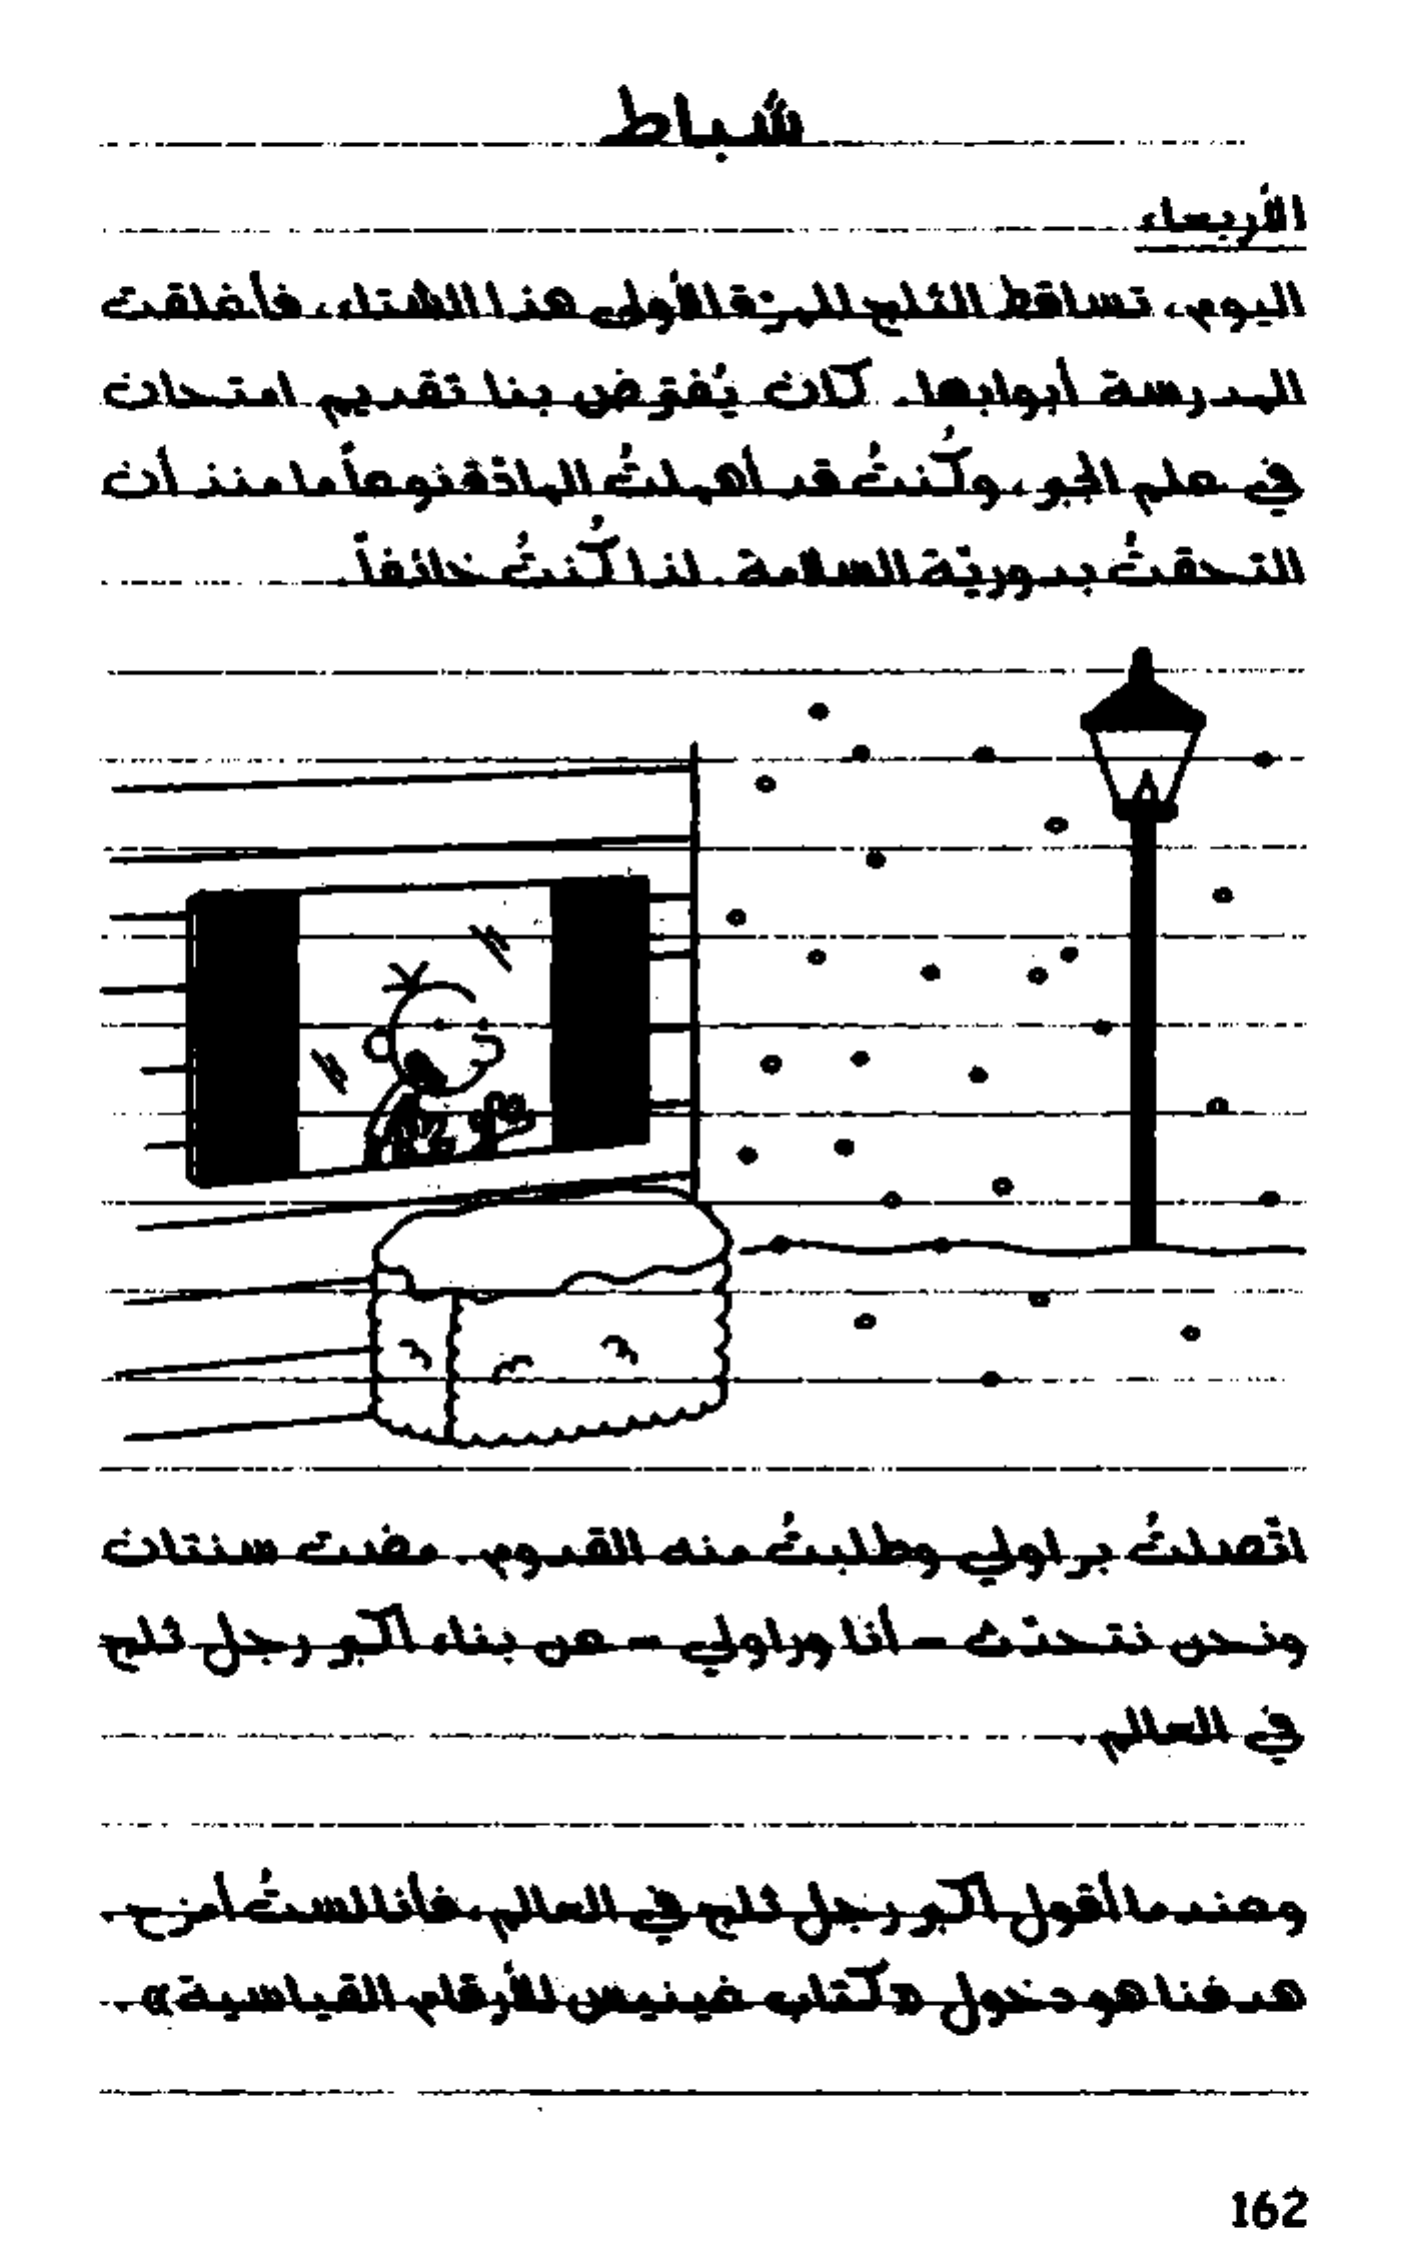 شباط
الأربعاء
اليوم، تساقط الثلج للمرّة الأولى هذا الشتاء، فأغلقت
المدرسة أبوابها. كان يُفترَض بنا تقديم امتحان
في علم الجبر، وكُنتُ قد أهملتُ المادّة نوعاً ما منذ أن
التحقتُ بدوريّة السلامة. لذا كُنتُ خائفاً.
اتّصلتُ براولي وطلبتُ منه القدوم. مضت سنتان
ونحن نتحدّث - أنا وراولي - عن بناء أكبر رجل ثلج
في العالم.
وعندما أقول أكبر رجل ثلج في العالم، فأنا لستُ أمزح.
هدفنا هو دخول «كتاب غينيس للأرقام القياسية».
162